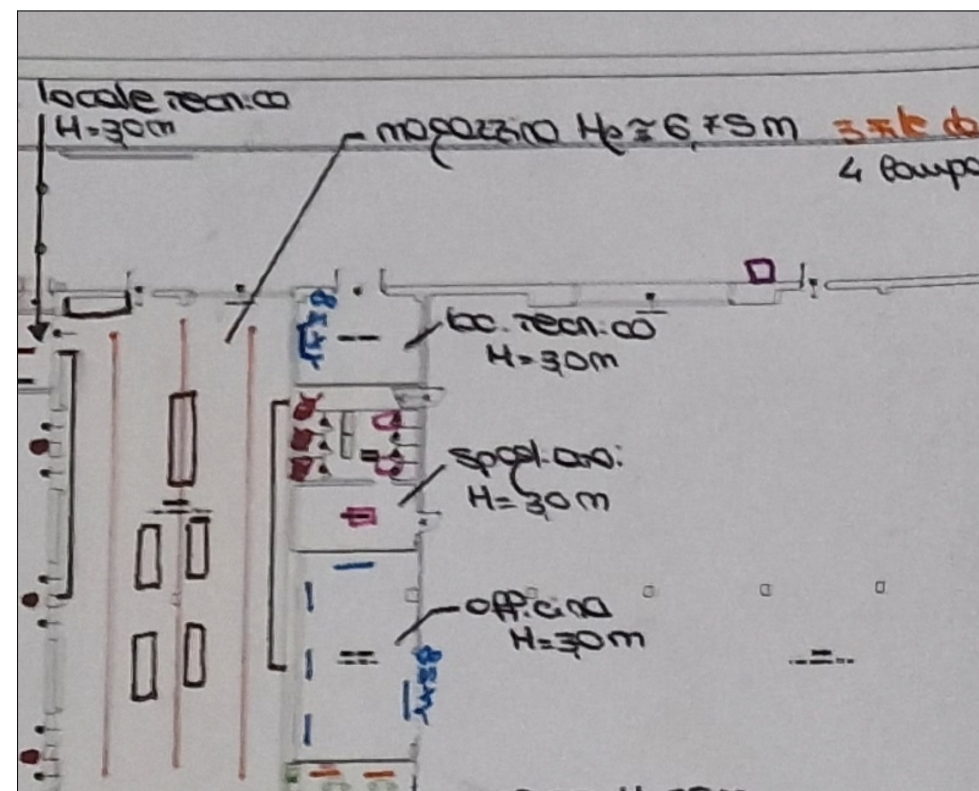 locale tecnico
H=3,0m
magazzino He≅6,75m
3 file da
4 lampa
1x58
loc. tecnico
H=3,0m
spogliatoi
H=3,0m
officina
H=3,0m
1x58